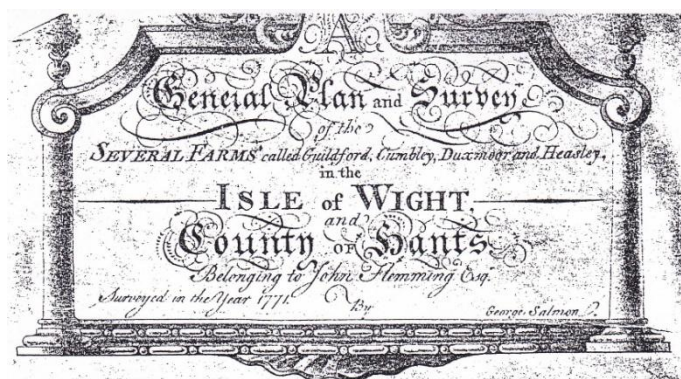 A
General Plan and Survey
of the
SEVERAL FARMS called Guildford, Cumbley, Duxmoor and Heasley,
in the
ISLE of WIGHT,
and
County OF Hants
Belonging to John Flemming Esqr.
Surveyed in the Year 1771.
By
George Salmon